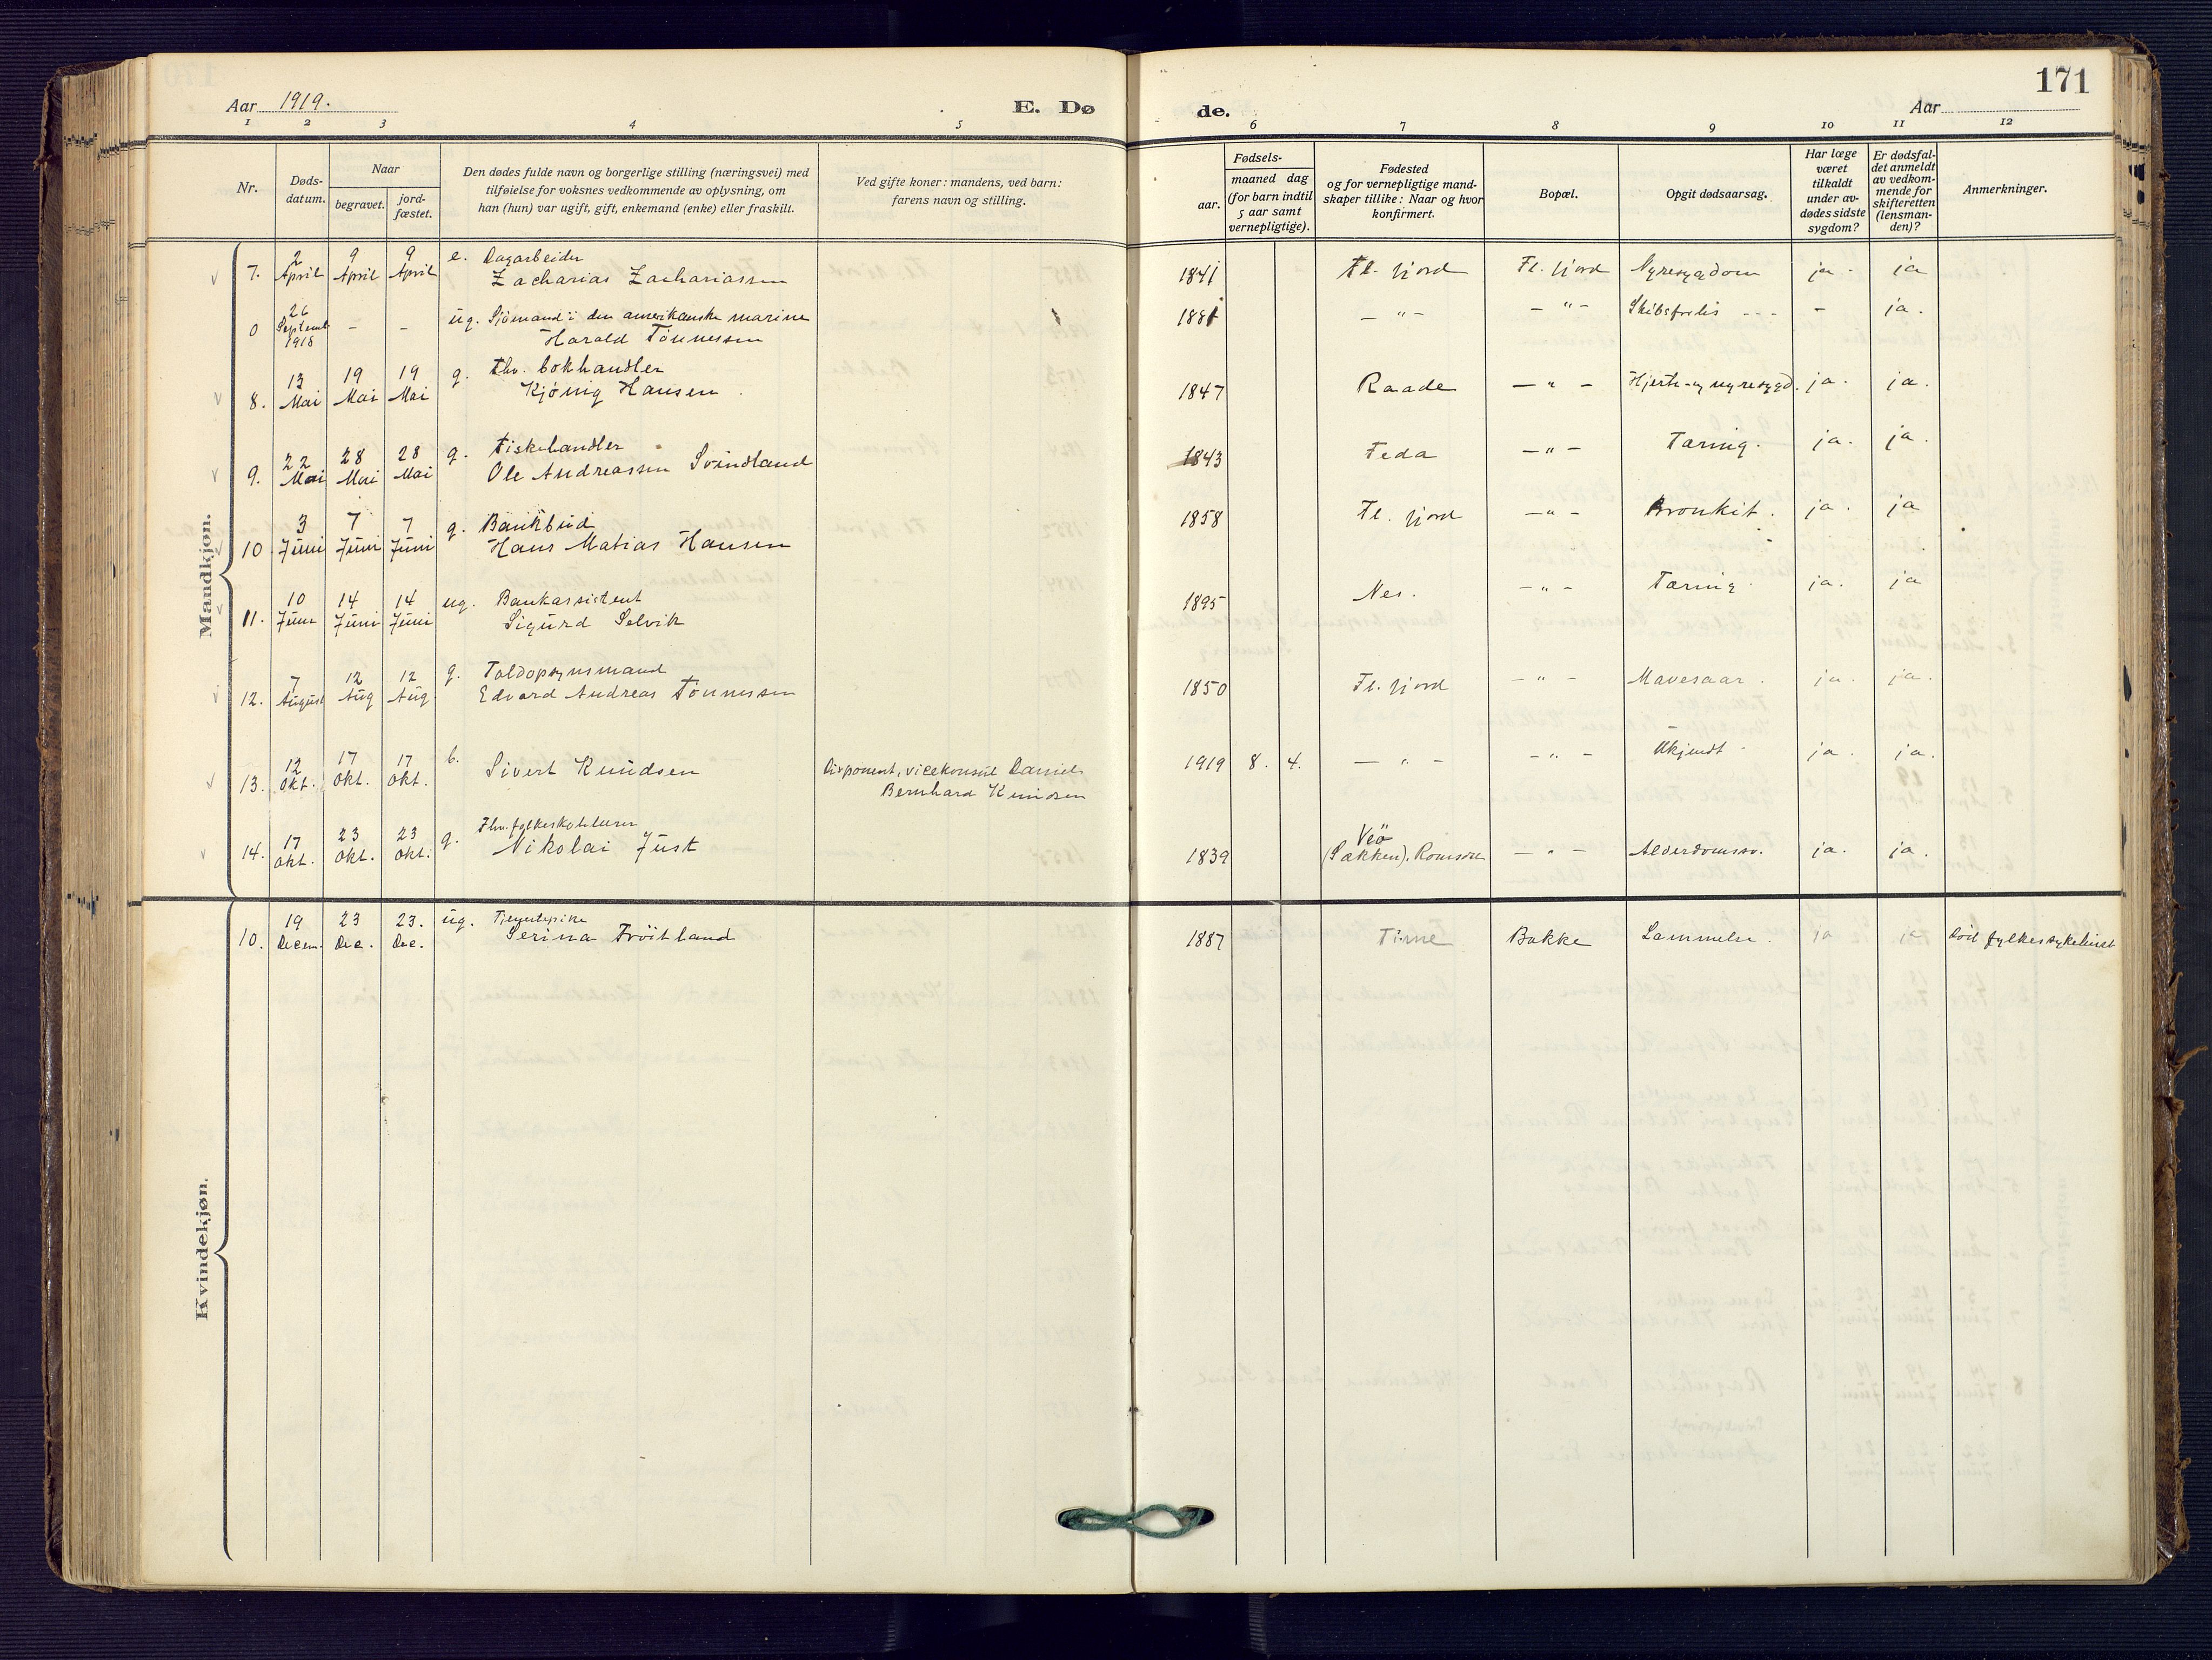 171
Aar 1919.
E. Dø de.
Aar
1 2 3 4 5 6 7 8 9 10 11 12
Nr.
Døds-
datum.
Naar
begravet.
jord-
fæstet.
Den dødes fulde navn og borgerlige stilling (næringsvei) med
tilføielse for voksnes vedkommende av oplysning, om
han (hun) var ugift, gift, enkemand (enke) eller fraskilt.
Ved gifte koner: mandens, ved barn:
farens navn og stilling.
Fødsels-
aar.
maaned dag
(for barn indtil
5 aar samt
vernepligtige).
Fødested
og for vernepligtige mand-
skaper tillike: Naar og hvor
konfirmert.
Bopæl.
Opgit dødsaarsag.
Har læge
været
tilkaldt
under av-
dødes sidste
sygdom?
Er dødsfal-
det anmeldt
av vedkom-
mende for
skifteretten
(lensman-
den)?
Anmerkninger.
Mandkjøn.
7. 2 April 9 April 9 April e. Dagarbeider
Zacharias Zachariassen 1841 Fl. fjord Fl. fjord Nyresygdom ja. ja
0 26 Septemb 1918 – – ug. Sjömand i den amerikanske marine
Harald Tönnessen 1881 – " – – " – Skibsforlis - - - – ja.
8. 13 Mai 19 Mai 19 Mai g. Fhv. bokhandler
Kjönig Hansen 1847 Raade – " – Hjerte- og nyresygd. ja. ja.
9. 22 Mai 28 Mai 28 Mai g. Fiskehandler
Ole Andreassen Svindland 1843 Feda – " – Tæring. ja. ja.
10 3 Juni 7 Juni 7 Juni g. Bankbud
Hans Matias Hansen 1858 Fl. fjord – " – Bronkit. ja. ja
11. 10 Juni 14 Juni 14 Juni ug. Bankassistent
Sigurd Selvik 1895 Nes. – " – Tæring. ja. ja
12. 7 August 12 Aug 12 Aug. g. Toldopsynsmand
Edvard Andreas Tönnessen 1850 Fl. fjord – " – Mavesaar. ja. ja.
13. 12 Okt. 17 Okt. 17 Okt. b. Sivert Knudsen Disponent, vicekonsul Daniel
Bernhard Knudsen 1919 8. 4. – " – – " – Ukjendt – ja. ja.
14. 17 Okt. 23 Okt. 23 Okt. g. Fhv. folkeskolelærer
Nikolai Just 1839 Veö
(Sækken), Romsdal – " – Alderdomssv. ja. ja.
Kvindekjøn.
10. 19 Decem. 23 Dec. 23. Dec. ug. Tjenestepike
Serina Tröitland 1887 Time Bakke Lammelse. ja ja Död fylkessykehuset